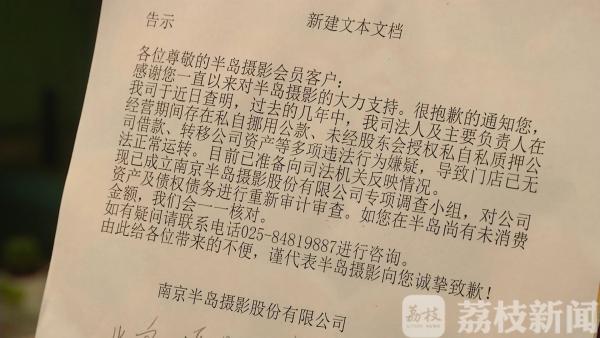 告示
新建文本文档
各位尊敬的半岛摄影会员客户：
感谢您一直以来对半岛摄影的大力支持。很抱歉的通知您，
我司于近日查明，过去的几年中，我司法人及主要负责人在
经营期间存在私自挪用公款、未经股东会授权私自私质押公
司借款、转移公司资产等多项违法行为嫌疑，导致门店已无
法正常运转。目前已准备向司法机关反映情况。
现已成立南京半岛摄影股份有限公司专项调查小组，对公司
资产及债权债务进行重新审计审查。如您在半岛尚有未消费
金额，我们会一一核对。
如有疑问请联系电话025-84819887进行咨询。
由此给各位带来的不便，谨代表半岛摄影向您诚挚致歉！
南京半岛摄影股份有限公司
荔枝
荔枝新闻